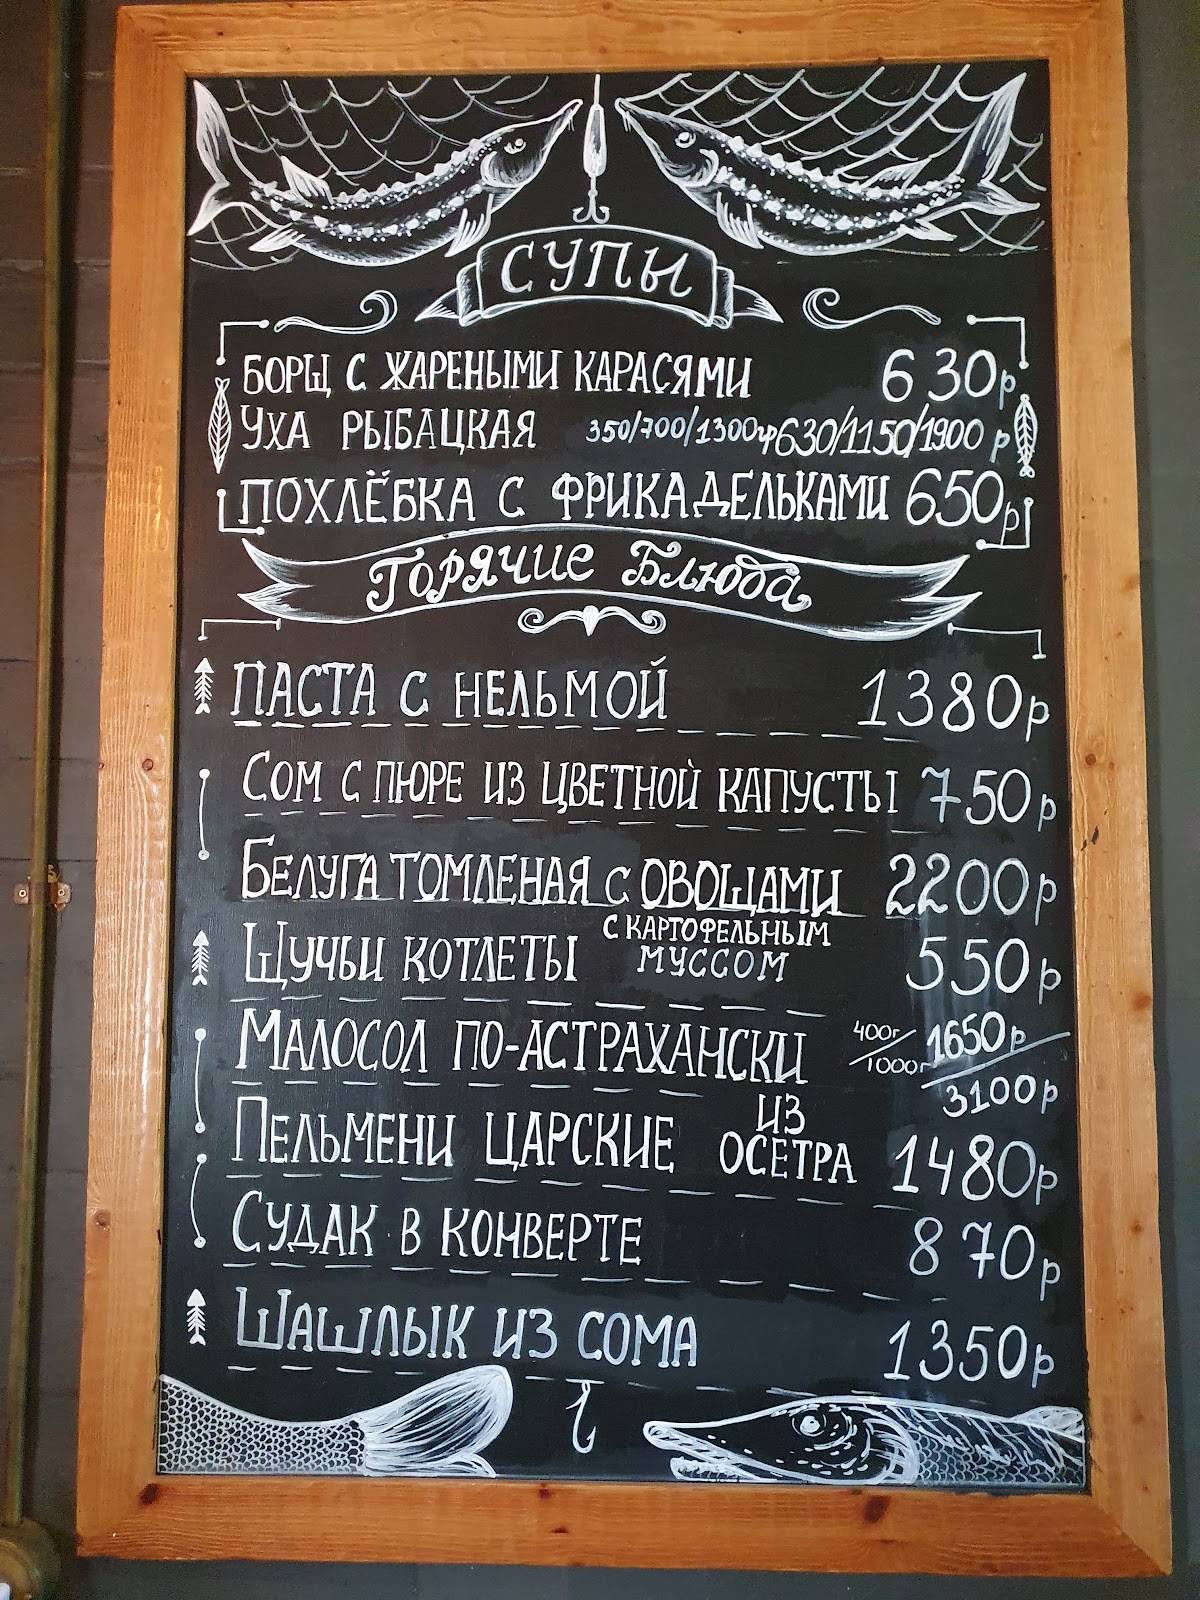 СУПЫ
БОРЩ С ЖАРЕНЫМИ КАРАСЯМИ 630р
УХА РЫБАЦКАЯ 350/700/1300гр 630/1150/1900 р
ПОХЛЁБКА С ФРИКАДЕЛЬКАМИ 650р
Горячие Блюда
ПАСТА С НЕЛЬМОЙ 1380р
СОМ С ПЮРЕ ИЗ ЦВЕТНОЙ КАПУСТЫ 750р
БЕЛУГА ТОМЛЕНАЯ С ОВОЩАМИ 2200р
ЩУЧЬИ КОТЛЕТЫ С КАРТОФЕЛЬНЫМ МУССОМ 550р
МАЛОСОЛ ПО-АСТРАХАНСКИ 400г/1000г 1650р/3100р
ПЕЛЬМЕНИ ЦАРСКИЕ ИЗ ОСЕТРА 1480р
СУДАК В КОНВЕРТЕ 870р
ШАШЛЫК ИЗ СОМА 1350р